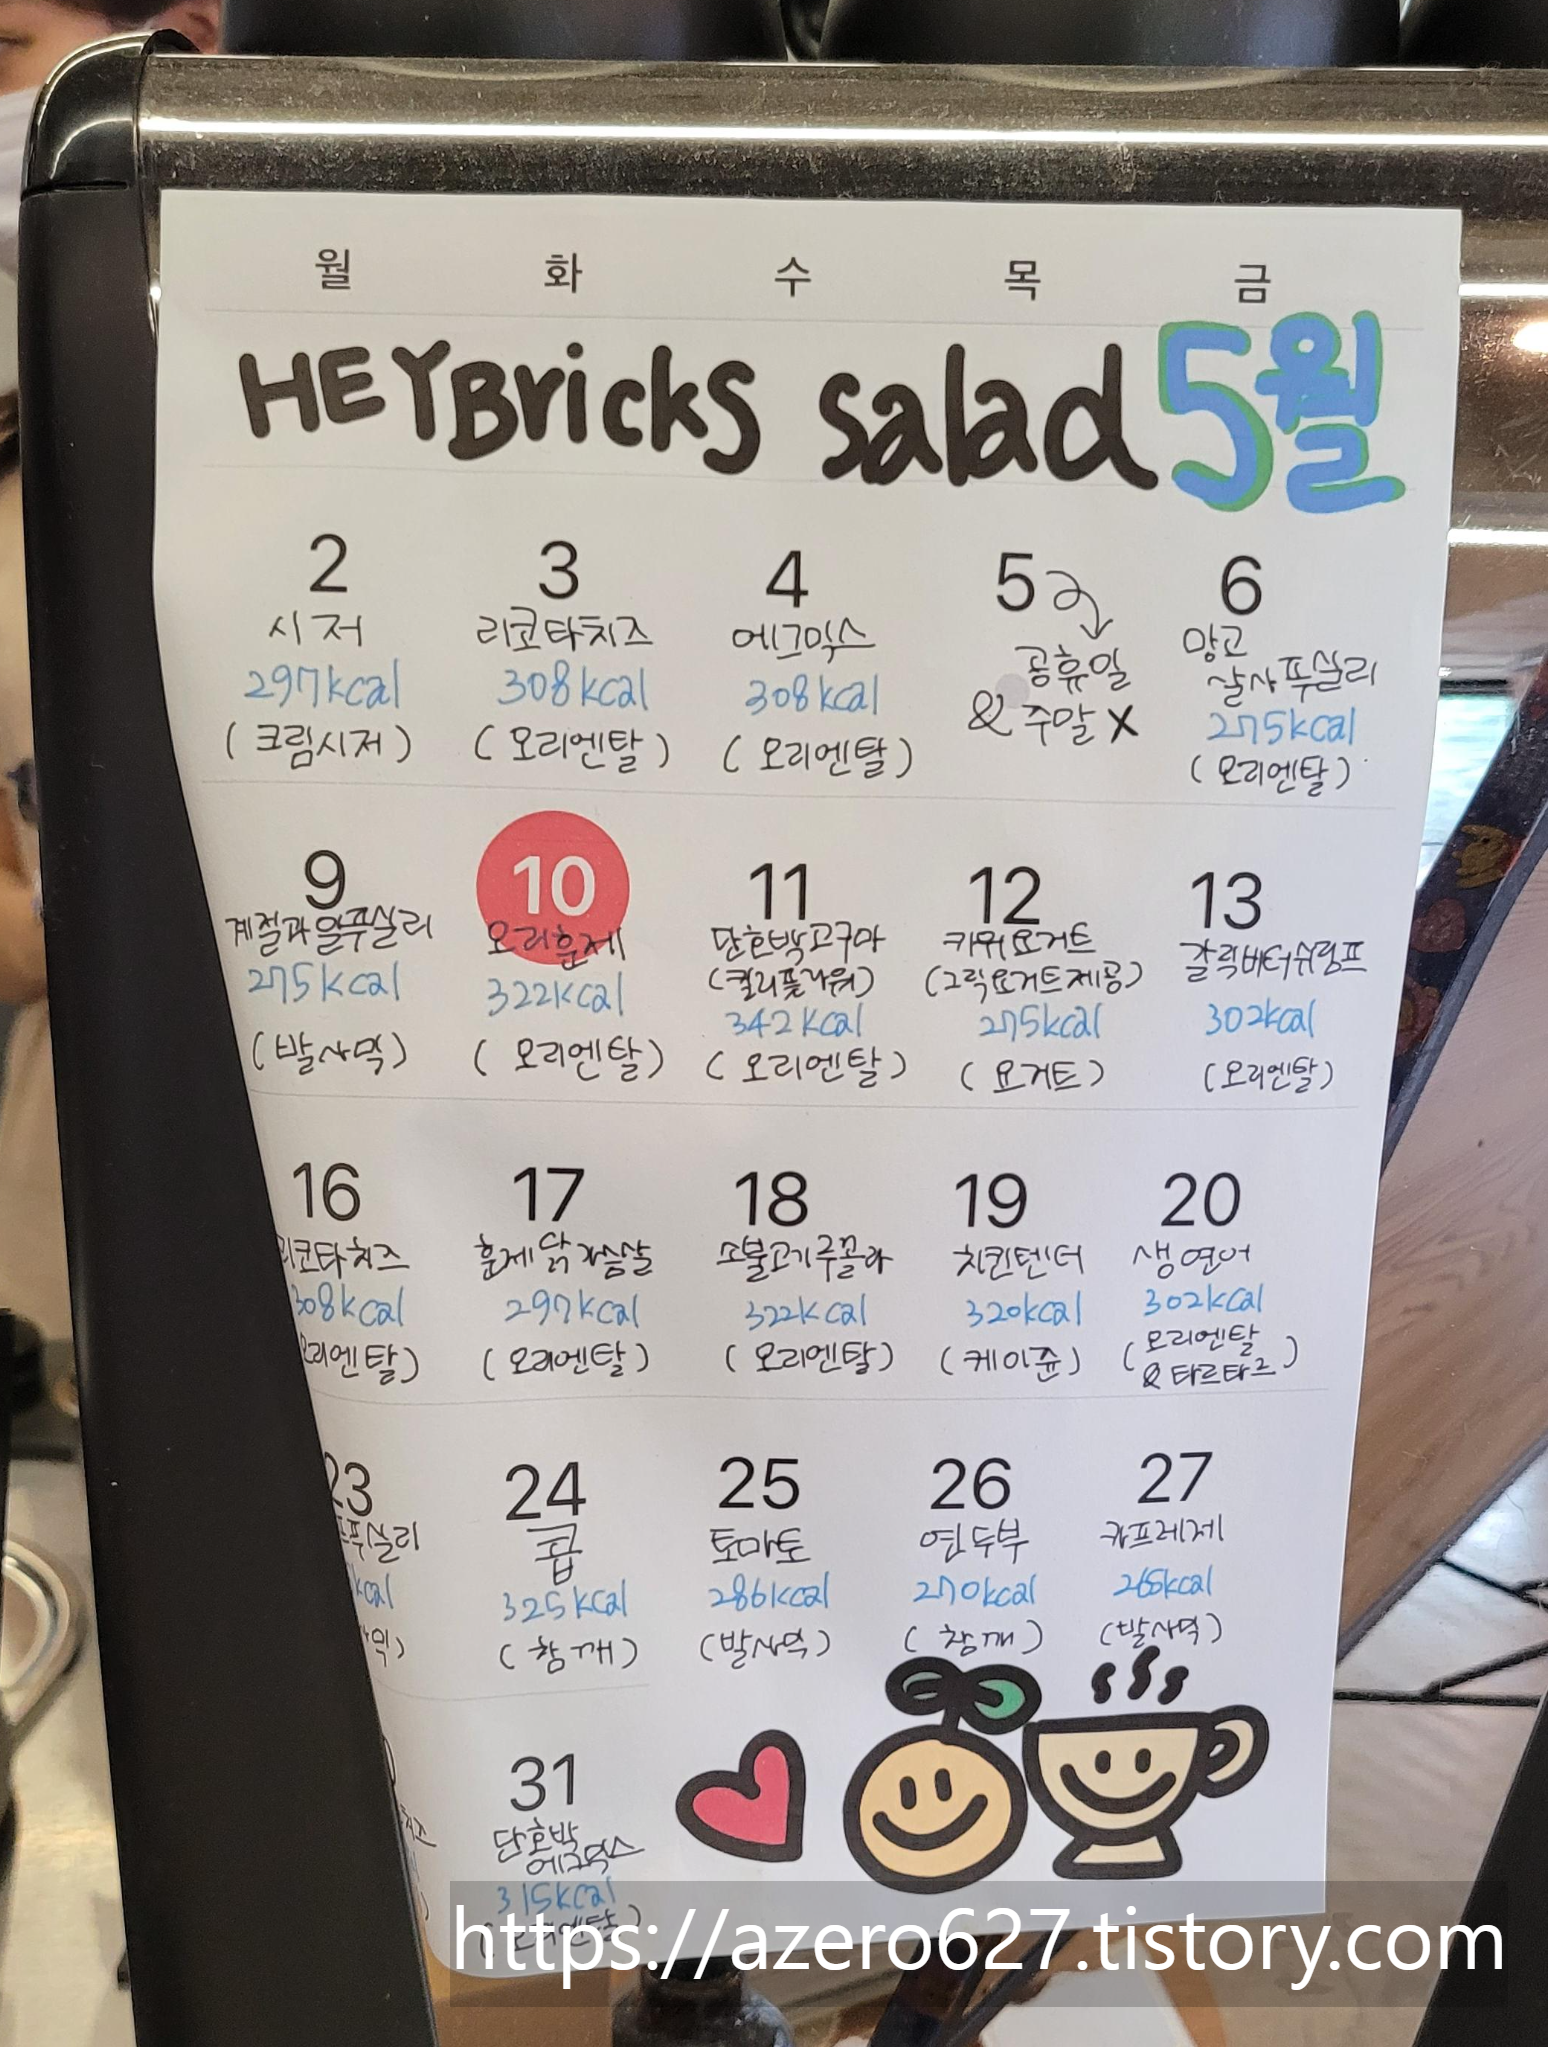 월 화 수 목 금
HEYBricks salad 5월
2 3 4 5 6
시저
297kcal
(크림시저)
리코타치즈
308kcal
(오리엔탈)
에그믹스
308kcal
(오리엔탈)
공휴일
& 주말 X
망고
살사푸실리
275kcal
(오리엔탈)
9 10 11 12 13
계절과일푸실리
275kcal
(발사믹)
오리훈제
322kcal
(오리엔탈)
단호박고구마
(컬리플라워)
342kcal
(오리엔탈)
키위요거트
(그릭요거트제공)
275kcal
(요거트)
갈릭버터쉬림프
302kcal
(오리엔탈)
16 17 18 19 20
리코타치즈
308kcal
오리엔탈)
훈제닭가슴살
297kcal
(오리엔탈)
소불고기루꼴라
322kcal
(오리엔탈)
치킨텐더
320kcal
(케이준)
생연어
302kcal
(오리엔탈
& 타르타르)
23 24 25 26 27
푸실리
kcal
믹)
콥
325kcal
(참깨)
토마토
286kcal
(발사믹)
연두부
270kcal
(참깨)
카프레제
265kcal
(발사믹)
31
단호박
에그믹스
315kcal
(오리엔탈)
https://azero627.tistory.com